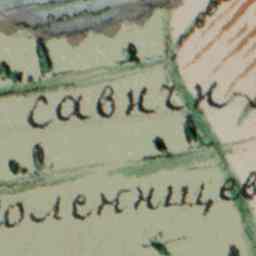 савичи
оленищев